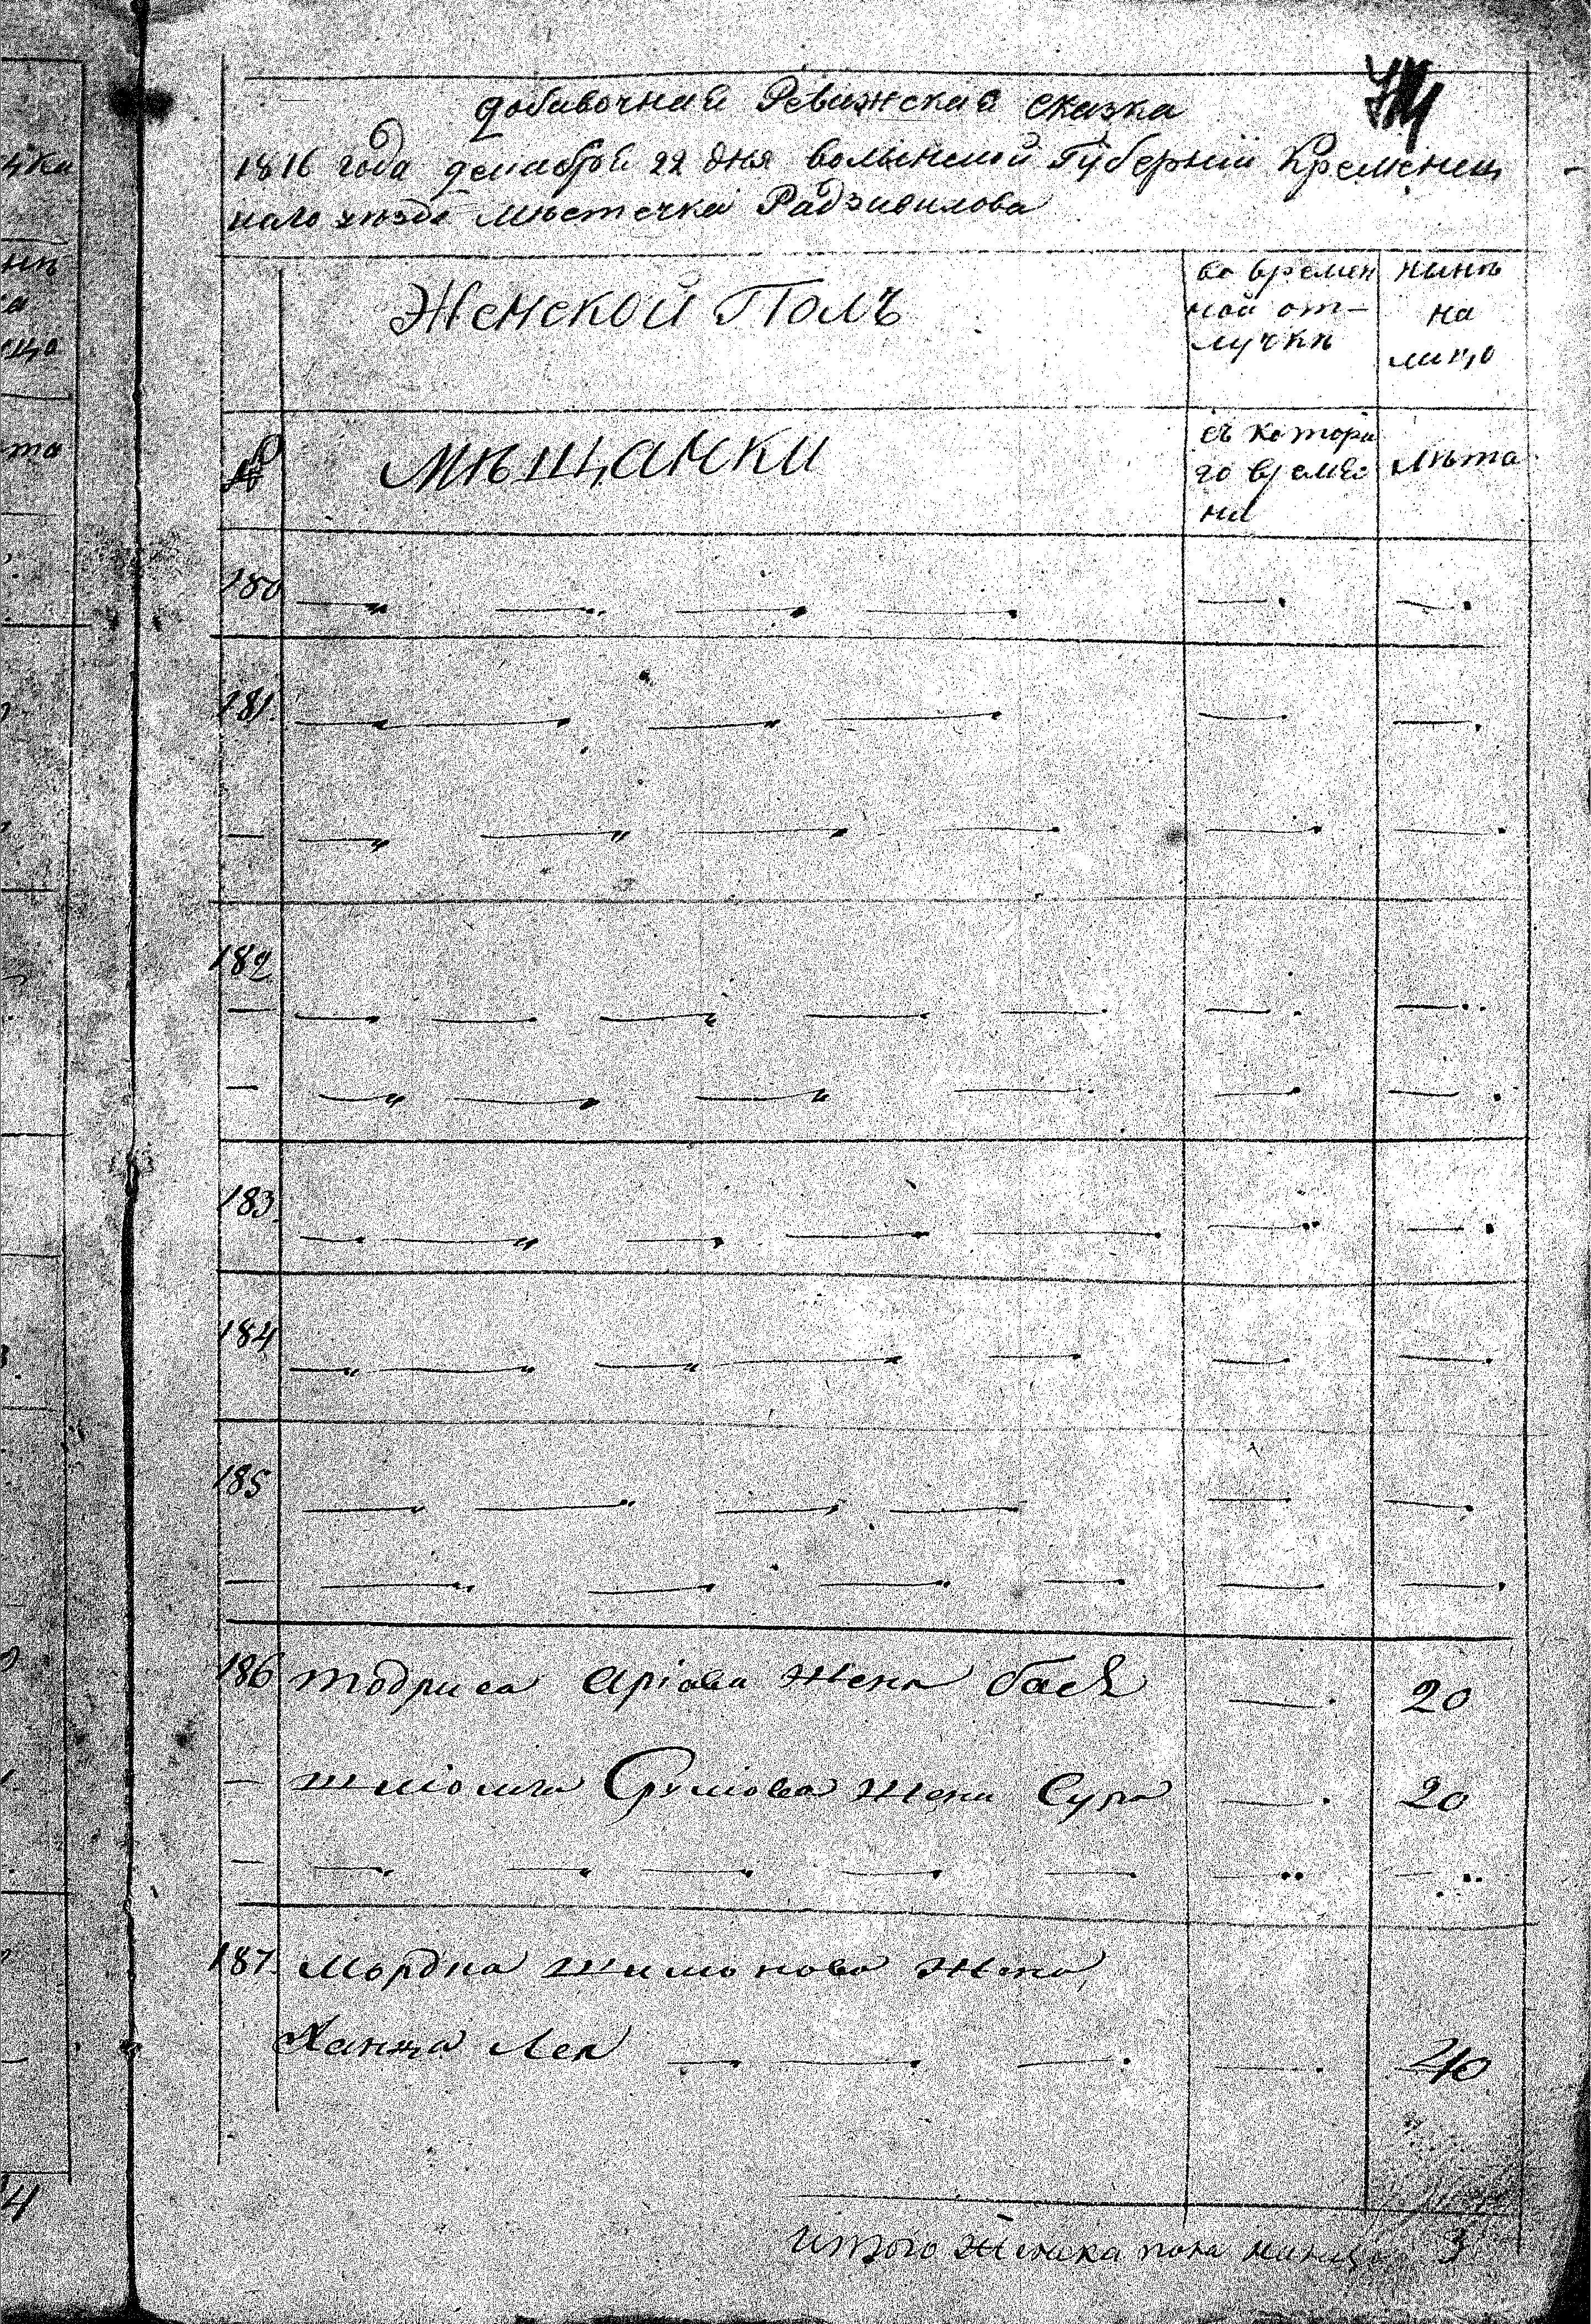 добавочная Ревижская сказка
1816 года декабря 22 дня волынской Губернии Кременец
каго уезда местечка Радзивилова
Женской Полъ
во времен
ной от-
лучки
нынѣ
на
лицо
№
мѣщанки
съ котора
го време:
ни
лѣта
180
181.
182
183.
184
185
186 тодриса Аріова жена бася 20
шліома Сруліова жена Сура 20
187. Мордка шимонова жена
Ханца Лея 40
итого женска пола налицо 3